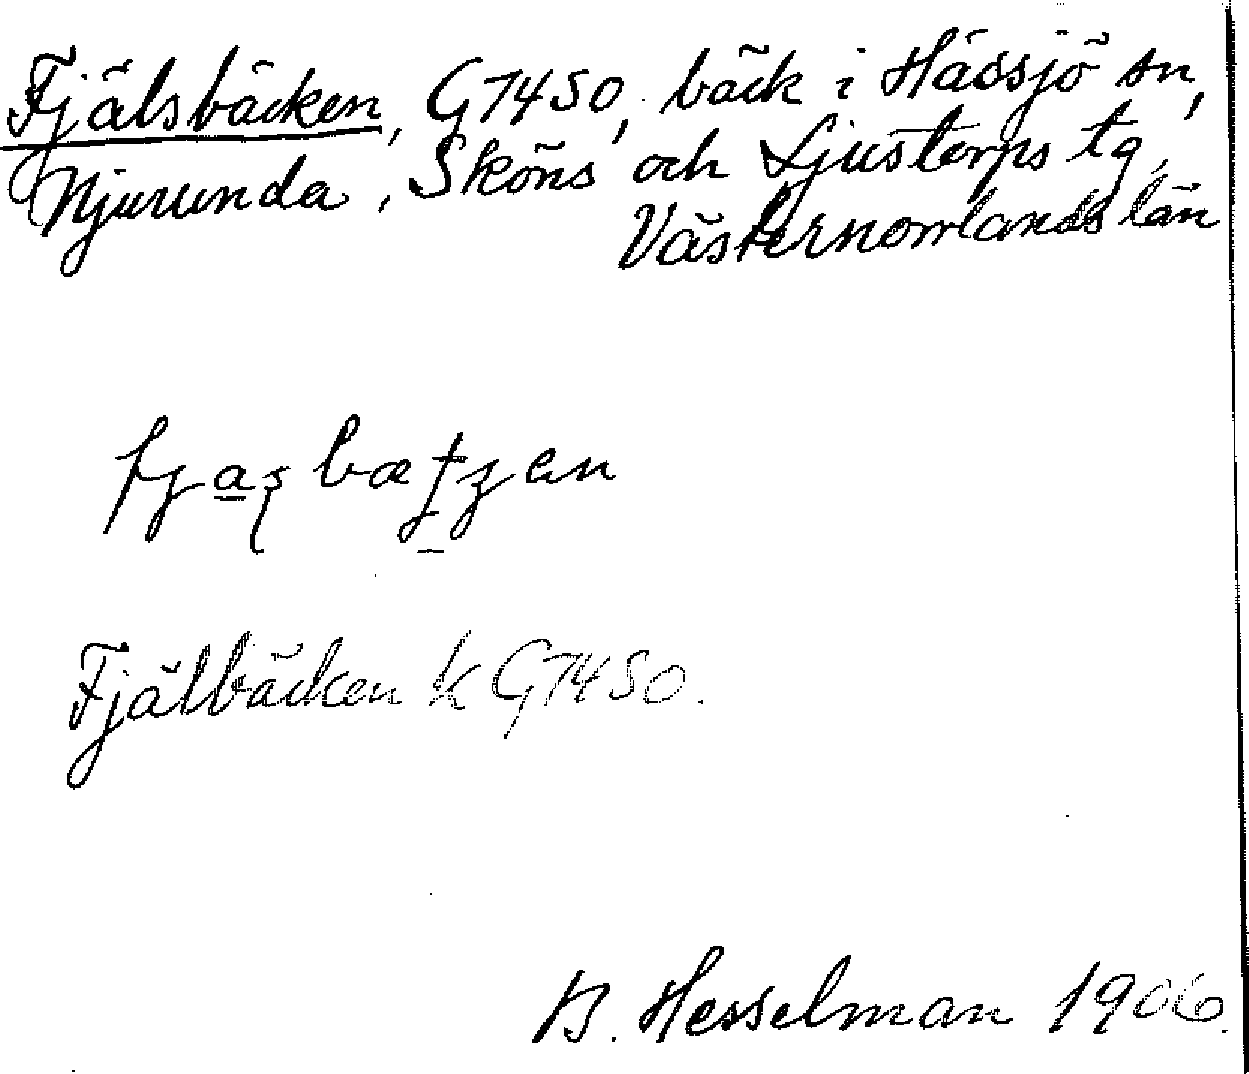 Fjälsbäcken, G74 SO, bäck i Hässjö sn,
Njurunda, Sköns och Ljustorps tg,
Västernorrlands län
Fjälbäcken k G74 SO.
B. Hesselman 1906.